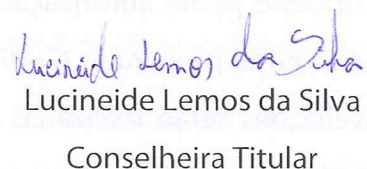 Lucineide Lemos da Silva
Lucineide Lemos da Silva
Conselheira Titular